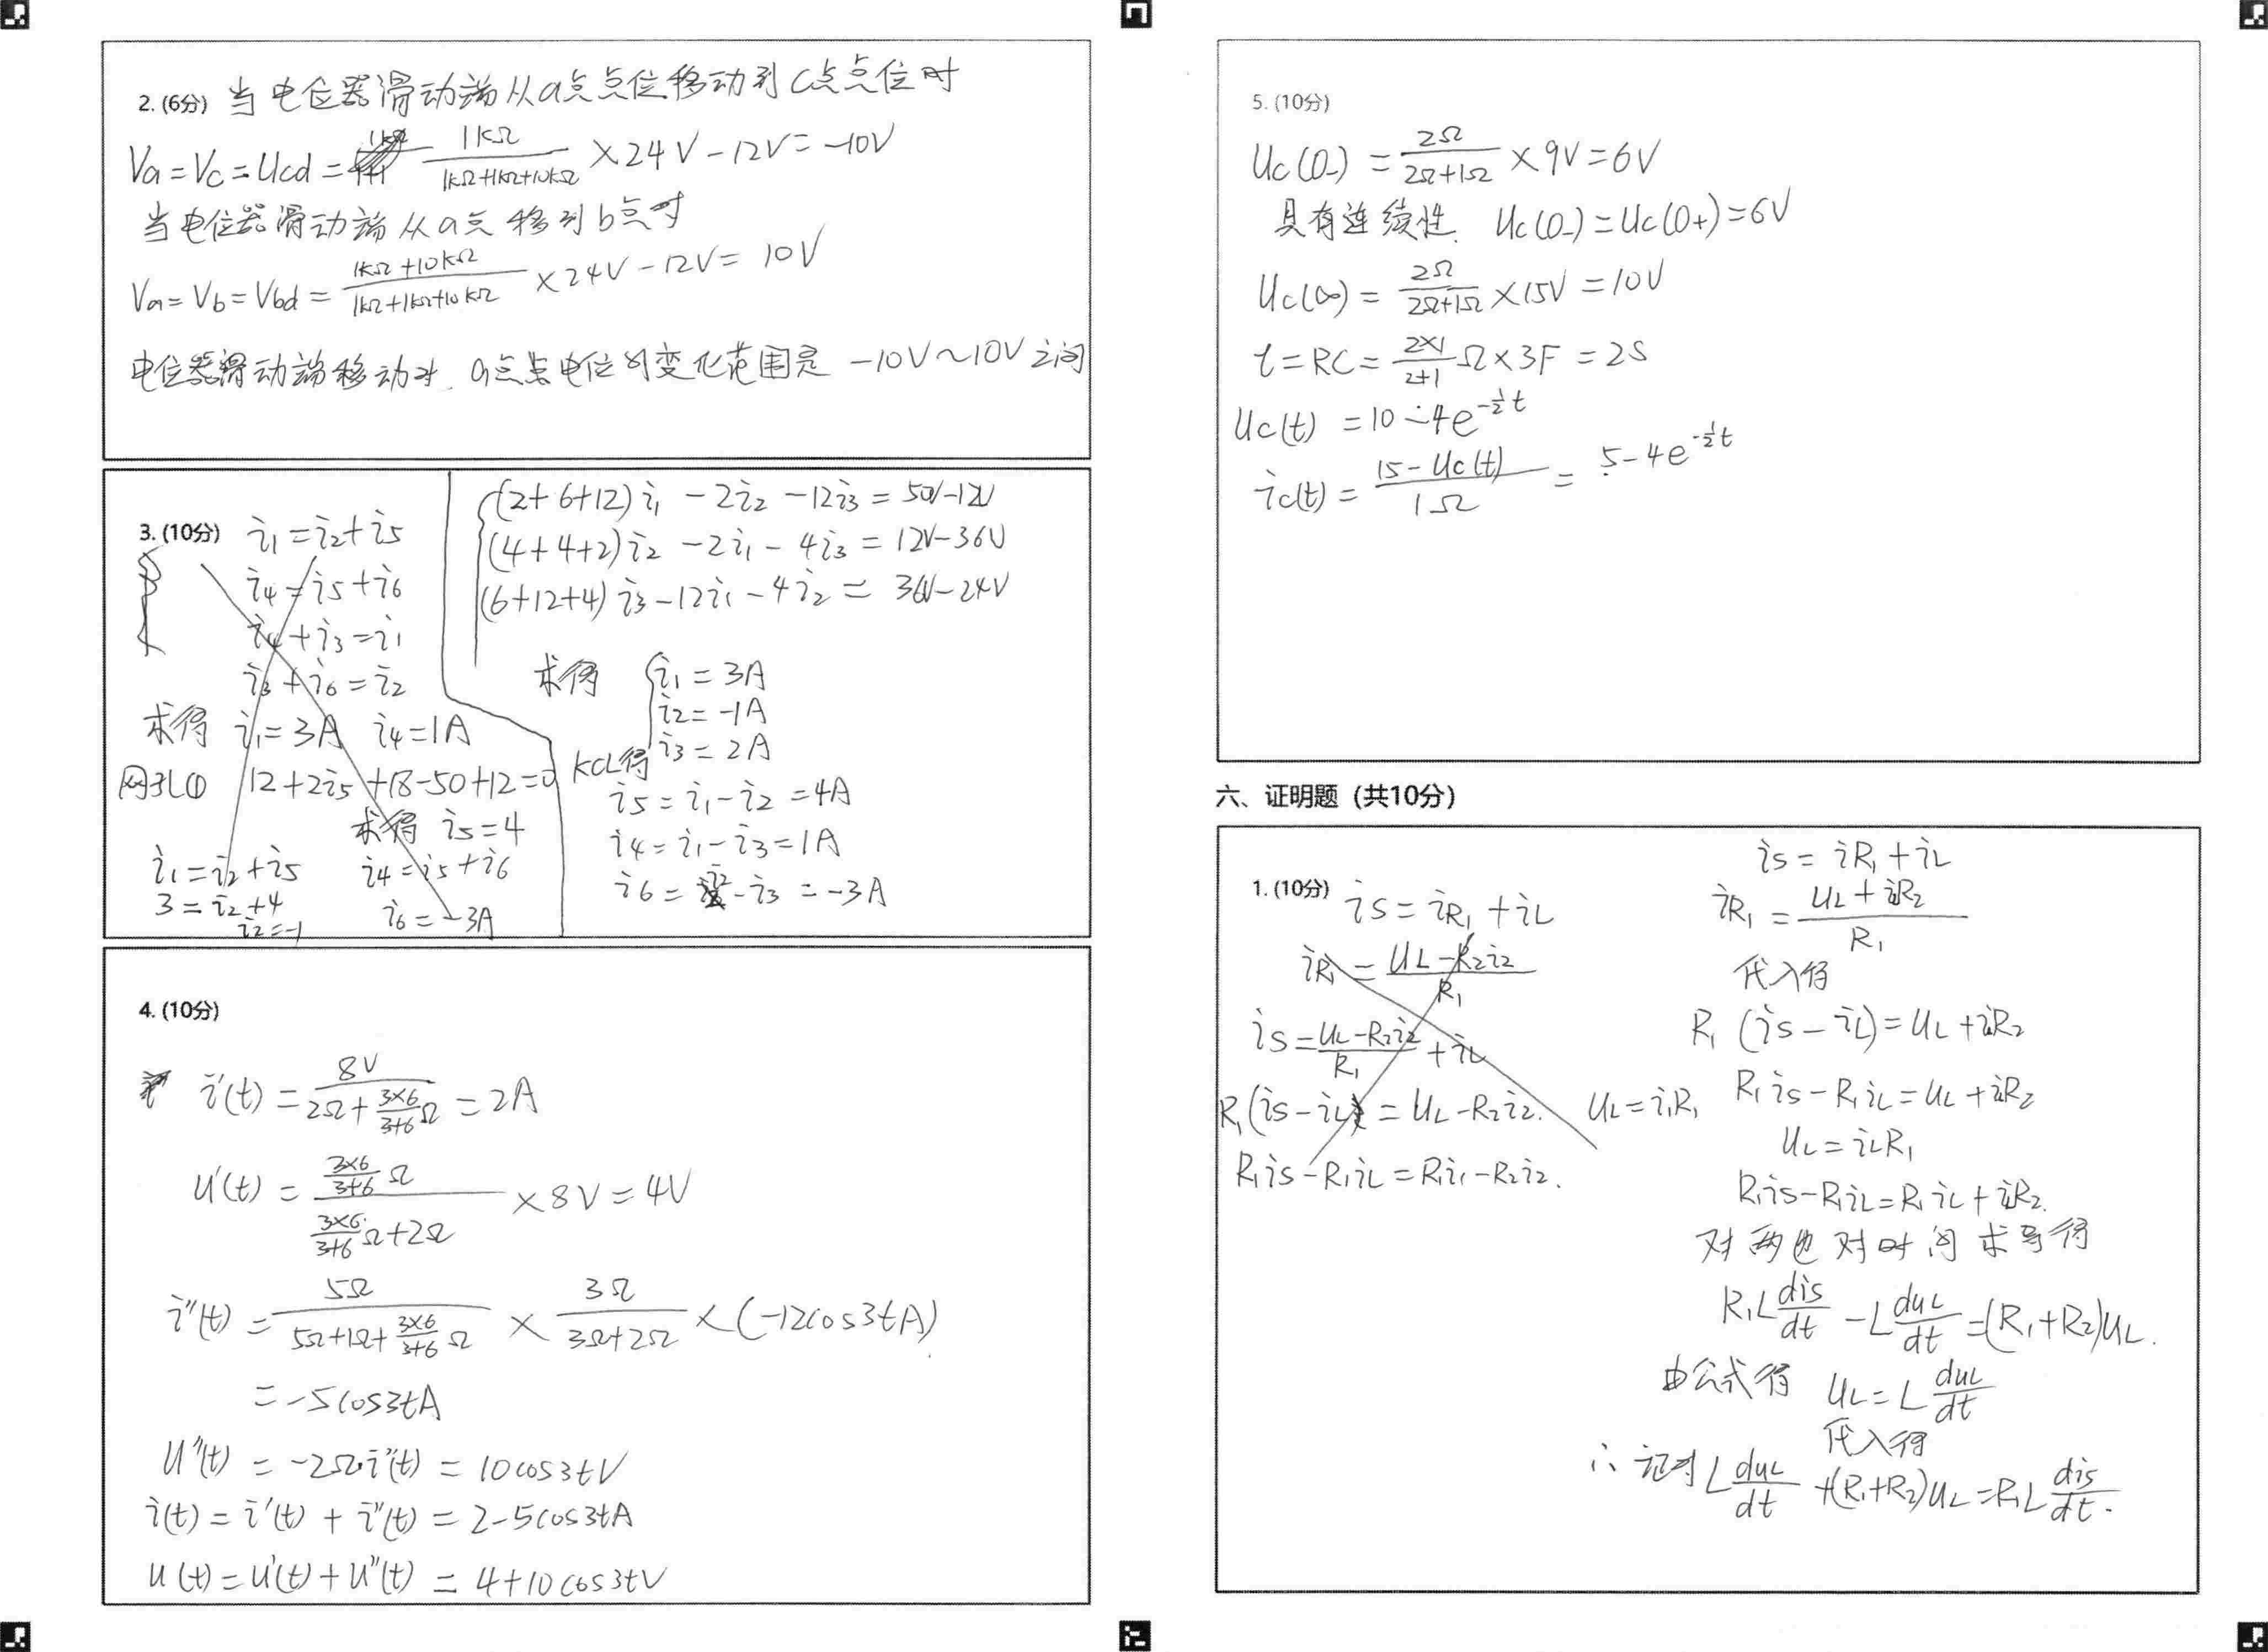 2. (6分) 当电位器滑动端从a点点位移动到C点点位时
Va=Vc=Ucd= 1KΩ/(1KΩ+1KΩ+10KΩ) ×24V-12V=-10V
当电位器滑动端从a点移到b点时
Va=Vb=Vbd= (1KΩ+10KΩ)/(1KΩ+1KΩ+10KΩ) ×24V-12V= 10V
电位器滑动端移动时. a点点电位的变化范围是 -10V~10V之间
3. (10分) i1=i2+i5
i4=i5+i6
i4+i3=i1
i3+i6=i2
求得 i1=3A i4=1A
网孔① 12+2i5+18-50+12=0
求得 i5=4
i1=i2+i5
3=i2+4
i2=-1
i4=i5+i6
i6=-3A
(2+6+12)i1 -2i2 -12i3 = 50V-12V
(4+4+2)i2 -2i1-4i3= 12V-36V
(6+12+4)i3-12i1-4i2= 36V-24V
求得 i1=3A
i2=-1A
i3=2A
KCL得
i5=i1-i2=4A
i4=i1-i3=1A
i6=i2-i3=-3A
4. (10分)
i'(t)= 8V/(2Ω+(3×6)/(3+6)Ω) =2A
u'(t)= ((3×6)/(3+6)Ω)/((3×6)/(3+6)Ω+2Ω) ×8V=4V
i"(t)= 5Ω/(5Ω+1Ω+(3×6)/(3+6)Ω) × 3Ω/(3Ω+2Ω) ×(-12cos3tA)
=-5cos3tA
U"(t) = -2Ω·i"(t) = 10cos3tV
i(t)=i'(t)+i"(t)=2-5cos3tA
u(t)=u'(t)+u"(t) = 4+10cos3tV
5. (10分)
Uc(0-) = 2Ω/(2Ω+1Ω) ×9V=6V
具有连续性. Uc(0-)=Uc(0+)=6V
Uc(∞)= 2Ω/(2Ω+1Ω) ×15V=10V
t=RC= (2×1)/(2+1)Ω×3F=2S
Uc(t) =10-4e^(-1/2 t)
ic(t)= (15-Uc(t))/1Ω = 5-4e^(-1/2 t)
六、证明题（共10分）
1. (10分) is=iR1+iL
iR1= (UL-R2i2)/R1
is= (UL-R2i2)/R1 +iL
R1(is-iL)=UL-R2i2. UL=i1R1
R1is-R1iL=R1i1-R2i2.
is=iR1+iL
iR1= (UL+iR2)/R1
代入得
R1(is-iL)=UL+iR2
R1is-R1iL=UL+iR2
UL=iLR1
R1is-R1iL=R1iL+iR2.
对两边对时间求导得
R1L dis/dt -L duL/dt =(R1+R2)UL.
由公式得 UL=L duL/dt
代入得
∴ 记对 L duL/dt +(R1+R2)UL=R1L dis/dt.